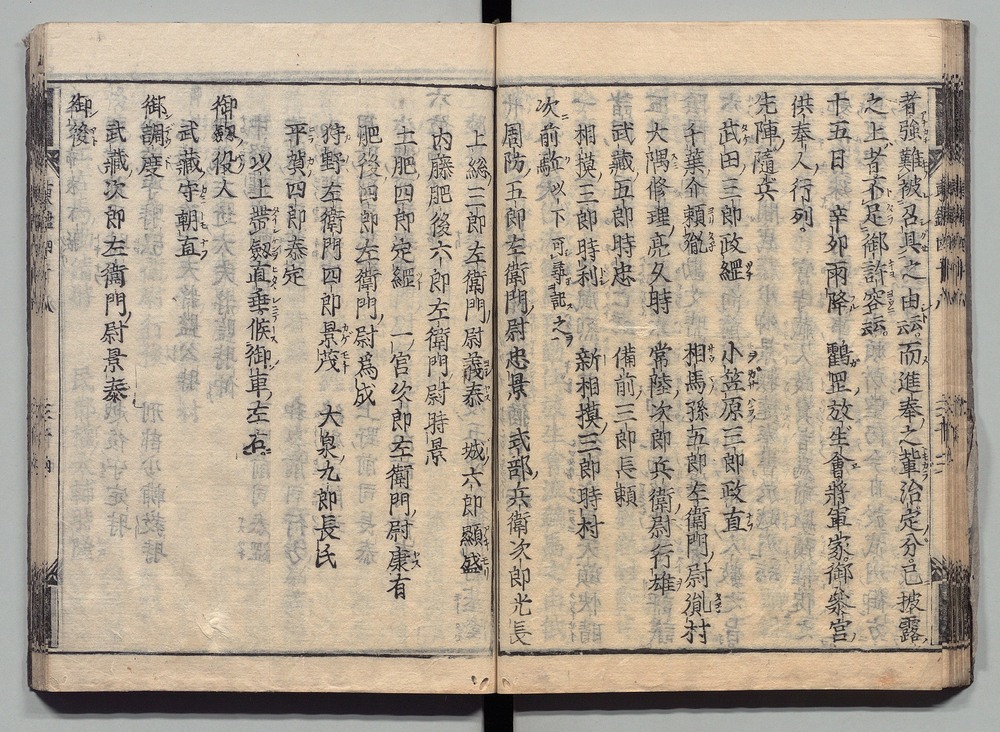 者強難被召具之由云云而進奉之輩治定分已披露
之上者不足御許容云云
十五日 辛卯雨降 鶴罡放生會將軍家御參宮
供奉人行列
先陣隨兵
武田三郎政綱 小笠原三郎政直
千葉介頼胤 相馬孫五郎左衛門尉胤村
大隅修理亮久時 常陸次郎兵衛尉行雄
武藏五郎時忠 備前三郎長頼
相摸三郎時利 新相摸三郎時村
次前駈以下可尋記之
周防五郎左衛門尉忠景 式部兵衛次郎光長
上総三郎左衛門尉義泰 城六郎顯盛
内藤肥後六郎左衛門尉時景
土肥四郎定綱 一宮次郎左衛門尉康有
肥後四郎左衛門尉爲成
狩野左衛門四郎景茂 大泉九郎長氏
平賀四郎泰定
以上帶劔直垂候御車左右
御劔役人
武藏守朝直
御調度
武藏次郎左衛門尉景泰
御後